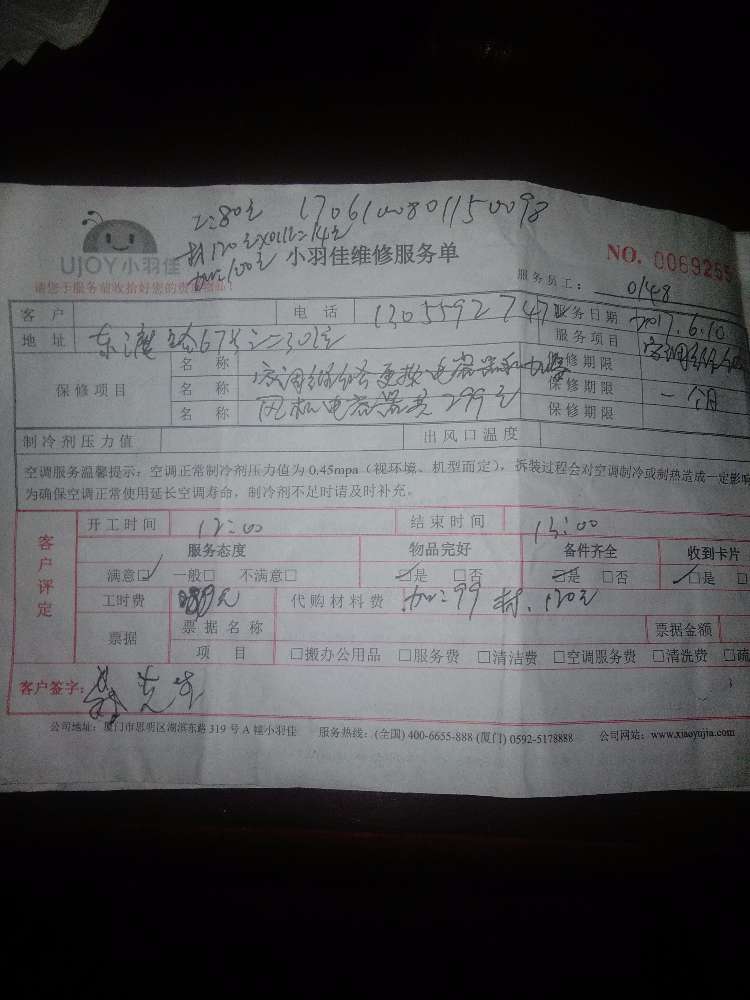 工:80元 1706100801150098
材120元X0.12=14元
加:100元
UJOY小羽佳 小羽佳维修服务单 NO. 0069255
请您于服务前收拾好您的贵重物品!
服务员工: 0148
客户 电话 服务日期 2017.6.10
地址 服务项目
名称 保修期限
保修项目 名称 299元 保修期限 一个月
名称 保修期限
制冷剂压力值 出风口温度
空调服务温馨提示:空调正常制冷剂压力值为0.45mpa(视环境、机型而定),拆装过程会对空调制冷或制热造成一定影响
为确保空调正常使用延长空调寿命,制冷剂不足时请及时补充。
客户评定
开工时间 12:00 结束时间 13:00
服务态度 物品完好 备件齐全 收到卡片
满意☑ 一般□ 不满意□ ☑是 □否 ☑是 □否 ☑是 □
工时费 代购材料费 加:99 材:120元
票据 票据名称 票据金额
项目 □搬办公用品 □服务费 □清洁费 □空调服务费 □清洗费 □疏
客户签字: 先生
公司地址:厦门市思明区湖滨东路319号A幢小羽佳 服务热线:(全国)400-6655-888(厦门)0592-5178888 公司网站:www.xiaoyujia.com